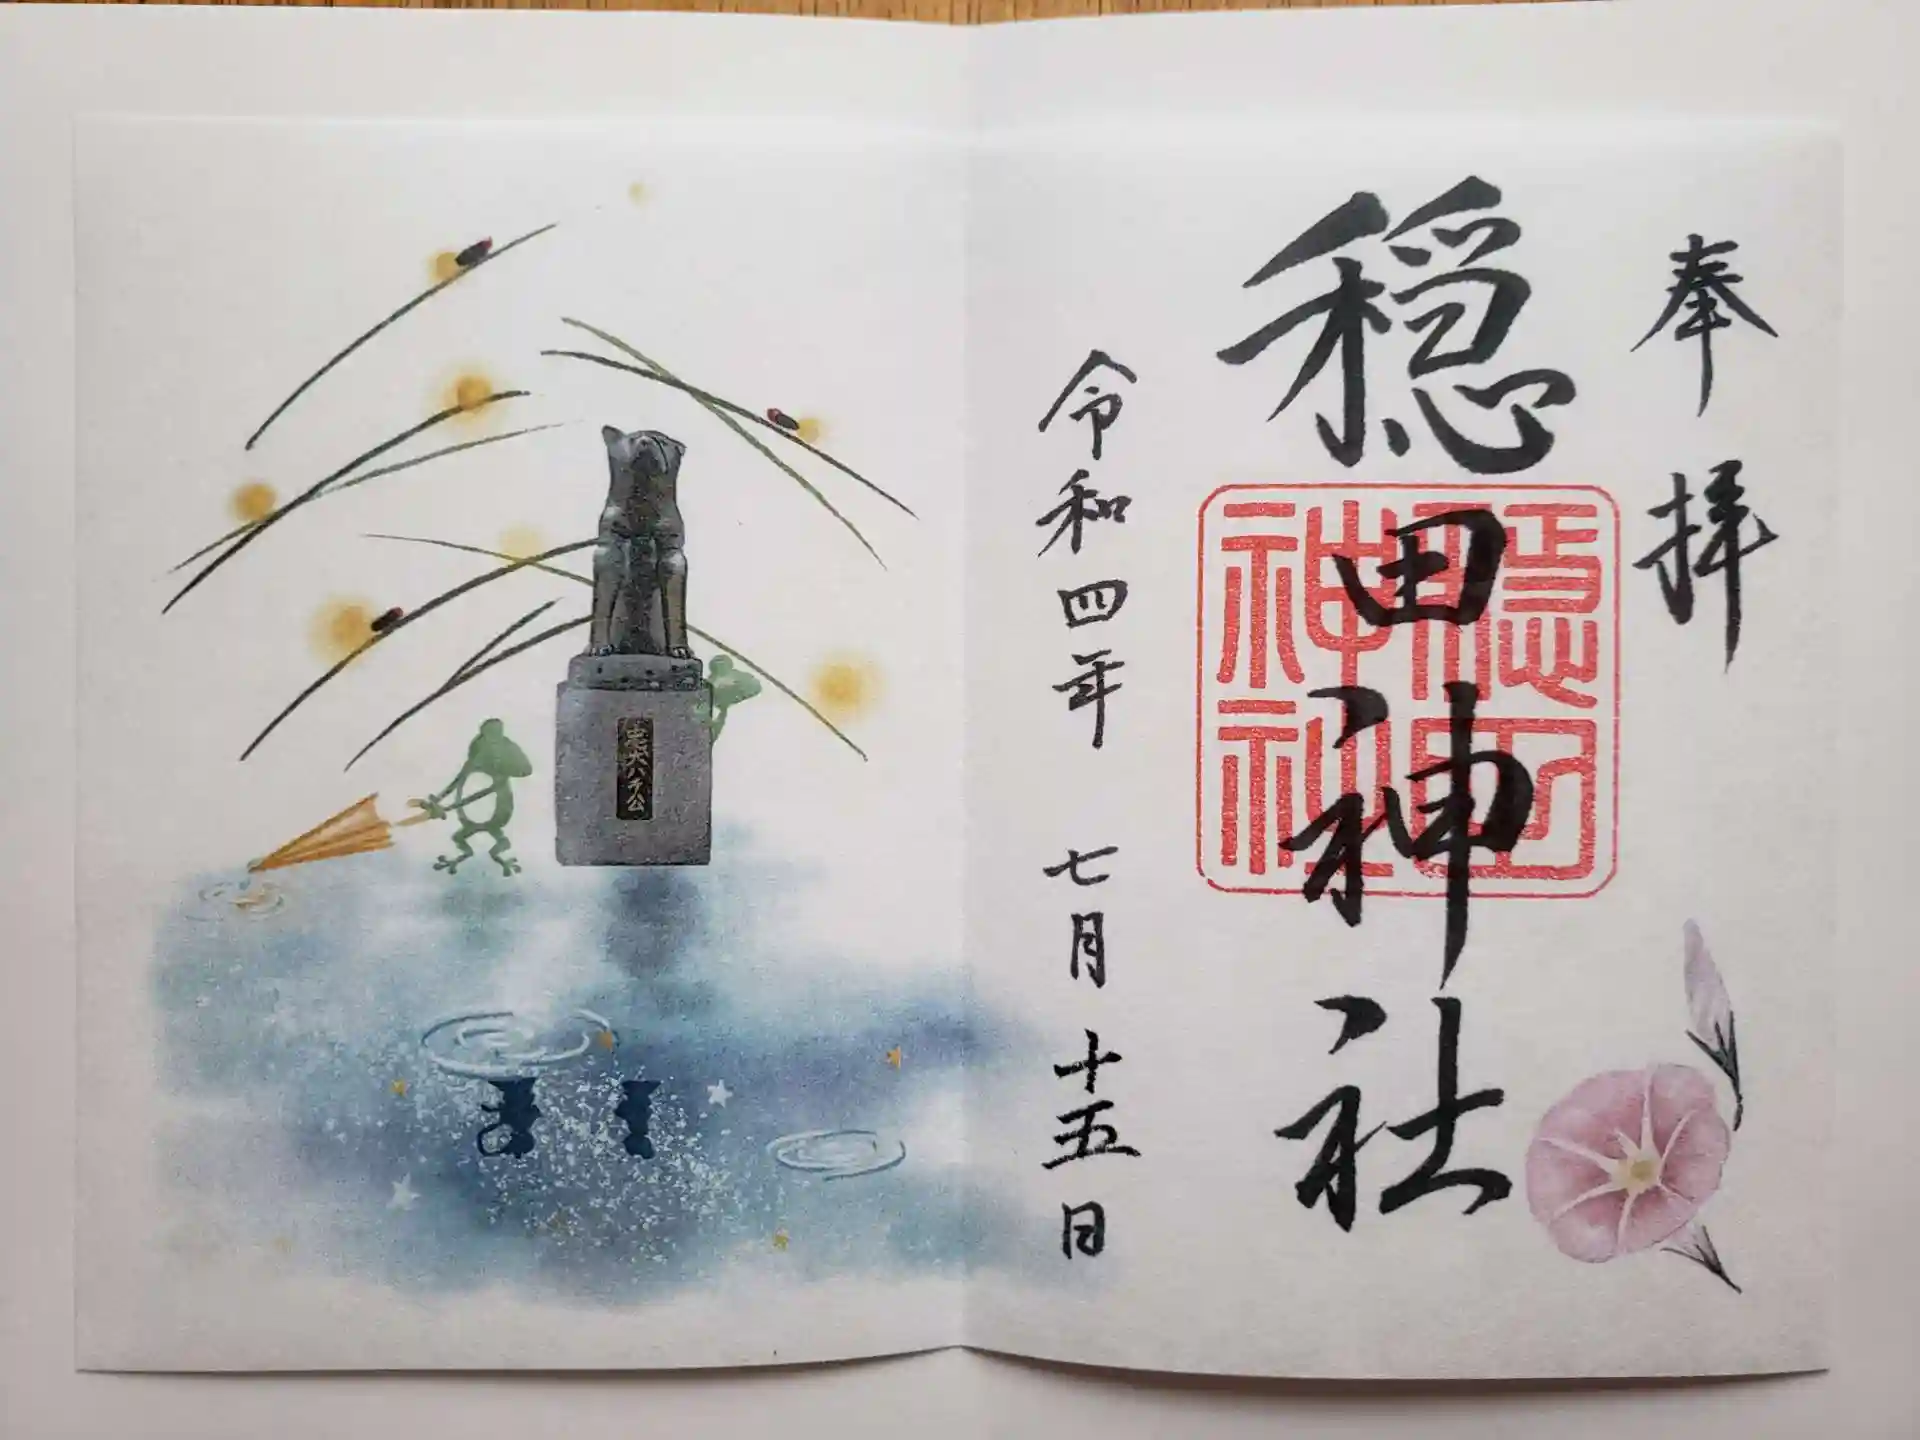 奉拝
穏田神社
穏田
神社
令和四年 七月十五日
忠犬ハチ公